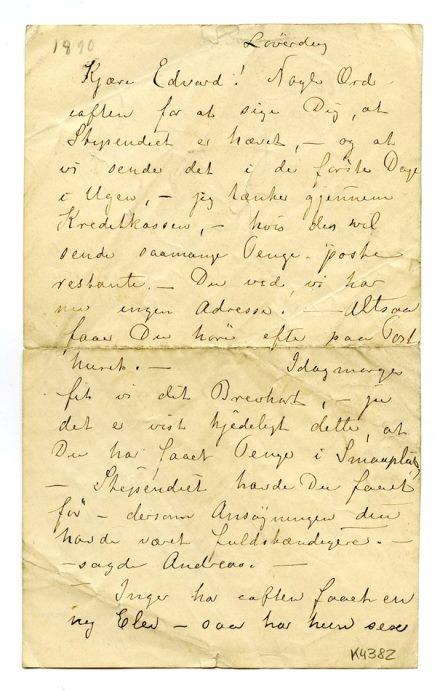 1890
Löverdag
Kjære Edvard! Nogle Ord
iaften for at sige Dig, at
Stipendiet er hævet, – og at
vi sender det i de förste Dage
i Ugen, – jeg tænker gjennem
Kreditkassen, – hvis de vil
sende saamange Penge poste
restante. – Du ved, vi har
nu ingen Adresse. – Altsaa
faar Du höre efter paa Post
huset. – Idagmorges
fik vi dit Brevkort, – ja
det er vist kjedeligt dette, at
Du har faaet Penge i Smaapluk,
– Stipendiet havde Du faaet
för – dersom Ansögningen den
havde været fuldstændigere. –
– sagde Andreas. –
Inger har iaften faaet en
ny Elev – saa har hun sex
K4382